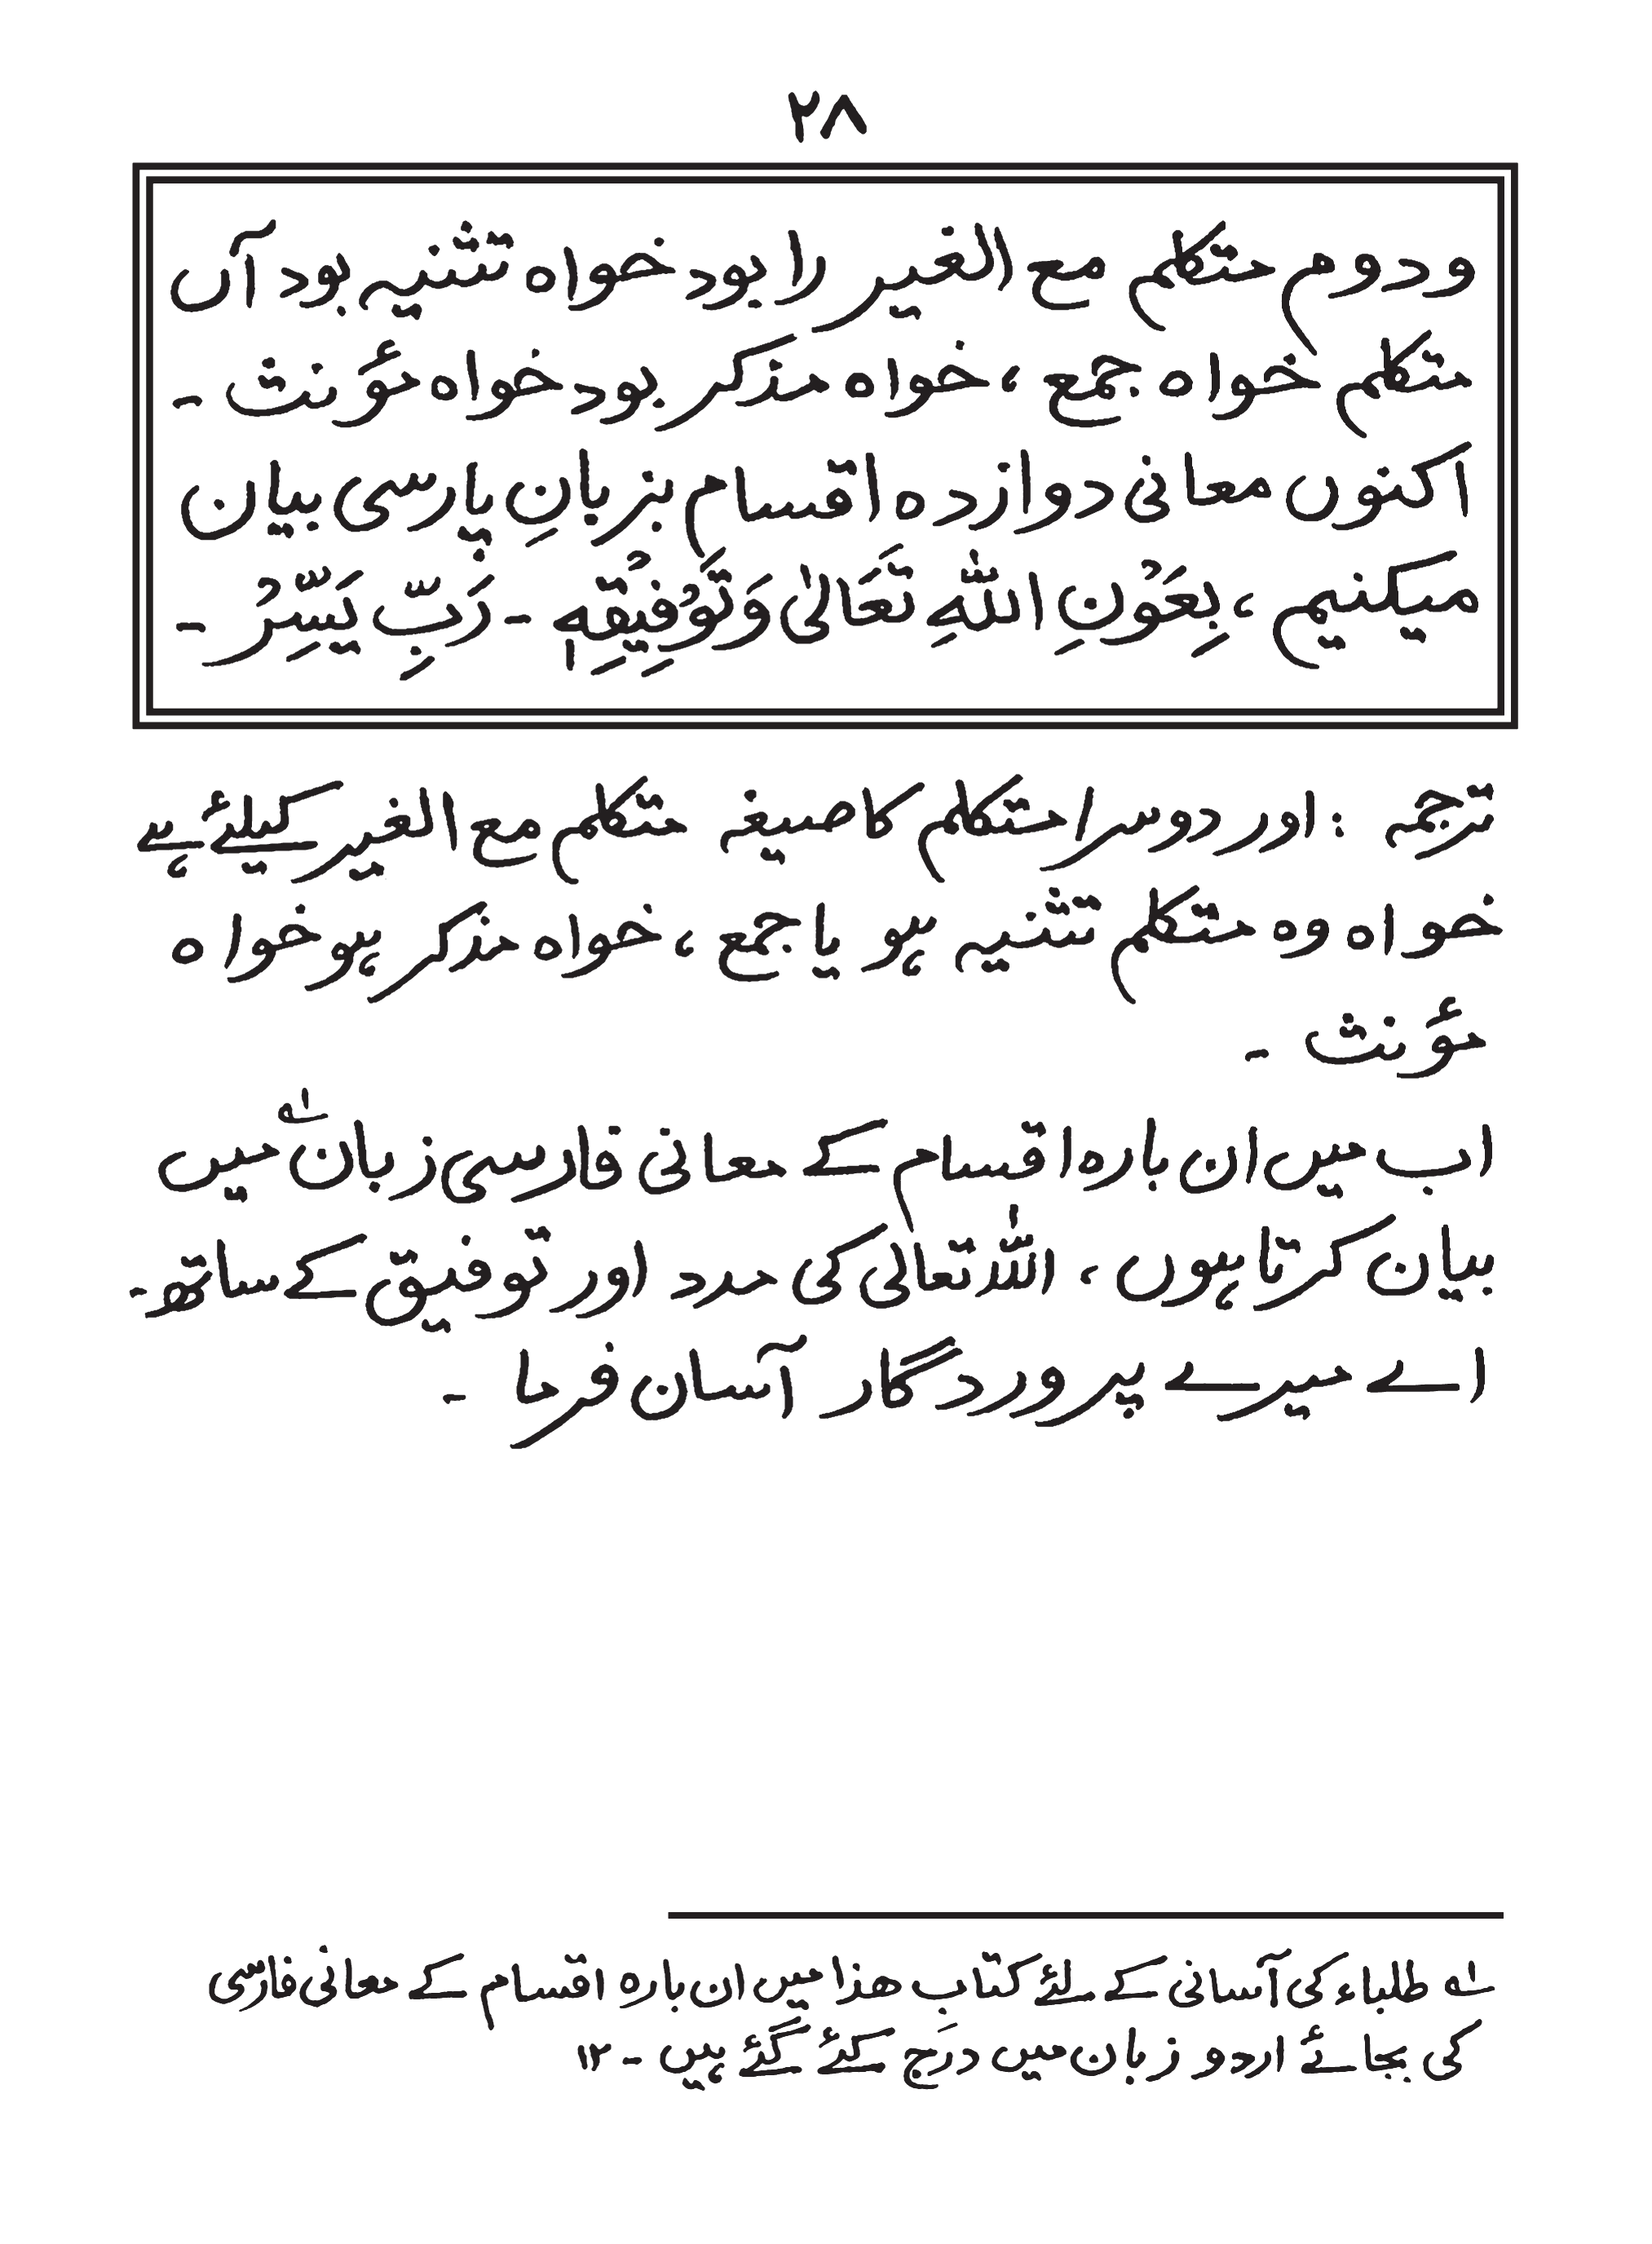 ۲۸
و دوم متکلم مع الغیر را بود خواہ تثنیہ بود آں
متکلم خواہ جمع ، خواہ مذکر بود خواہ مؤنث ۔
اکنوں معانی دوازدہ اقسام بزبانِ پارسی بیان
میکنیم ، بِعَوْنِ اللّٰہِ تَعَالیٰ وَتَوْفِیْقِہٖ ۔ رَبِّ یَسِّرْ ۔
ترجمہ : اور دوسرا متکلم کا صیغہ متکلم مع الغیر کیلئے ہے
خواہ وہ متکلم تثنیہ ہو یا جمع ، خواہ مذکر ہو خواہ
مؤنث ۔
اب میں ان بارہ اقسام کے معانی فارسی زبان ؂۱ میں
بیان کرتا ہوں ، اللہ تعالیٰ کی مدد اور توفیق کے ساتھ ۔
اے میرے پروردگار آسان فرما ۔
؂۱ طلباء کی آسانی کے لئے کتاب ھذا میں ان بارہ اقسام کے معانی فارسی
کی بجائے اردو زبان میں درج کئے گئے ہیں ۔ ۱۲